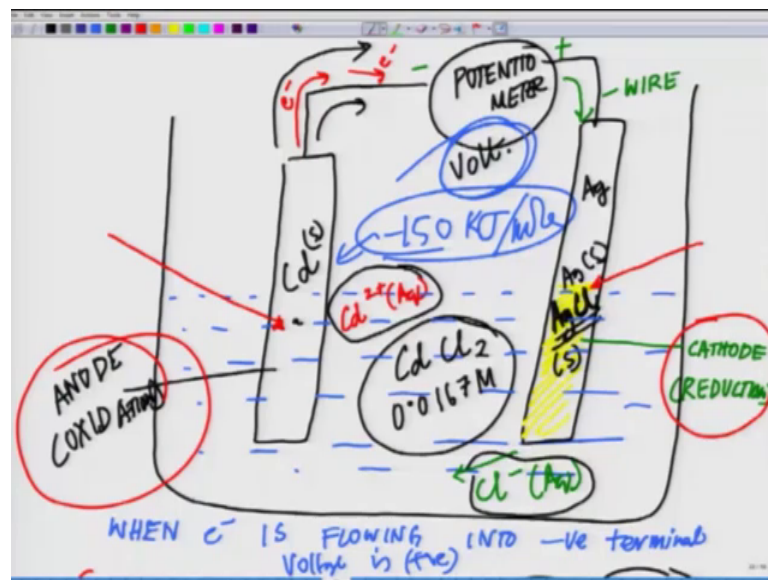 e⁻
e⁻
−
+
POTENTIO
METER
WIRE
Volt.
Ag
−150 KJ/mole
Cd(s)
Ag(s)
Cd²⁺(Aq)
AgCl
(s)
CdCl₂
0.0167M
ANODE
(OXIDATION)
CATHODE
(REDUCTION)
Cl⁻(Aq)
WHEN e⁻ IS FLOWING INTO −ve terminal
Voltage is (+ve)